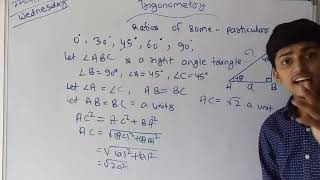 Wednesday
Trigonometry
Ratios of some - particular
0°, 30°, 45°, 60°, 90°,
Let ∠ABC is a right angle triangle
∠B=90°, ∠A=45°, ∠C=45°
Let ∠A = ∠C, AB=BC
Let AB=BC = a units
AC = √2 a unit
A
45°
B
a
AC² = AC² + BA²
AC = √(BC)²+(BA)²
= √(a)²+(a)²
= √2a²